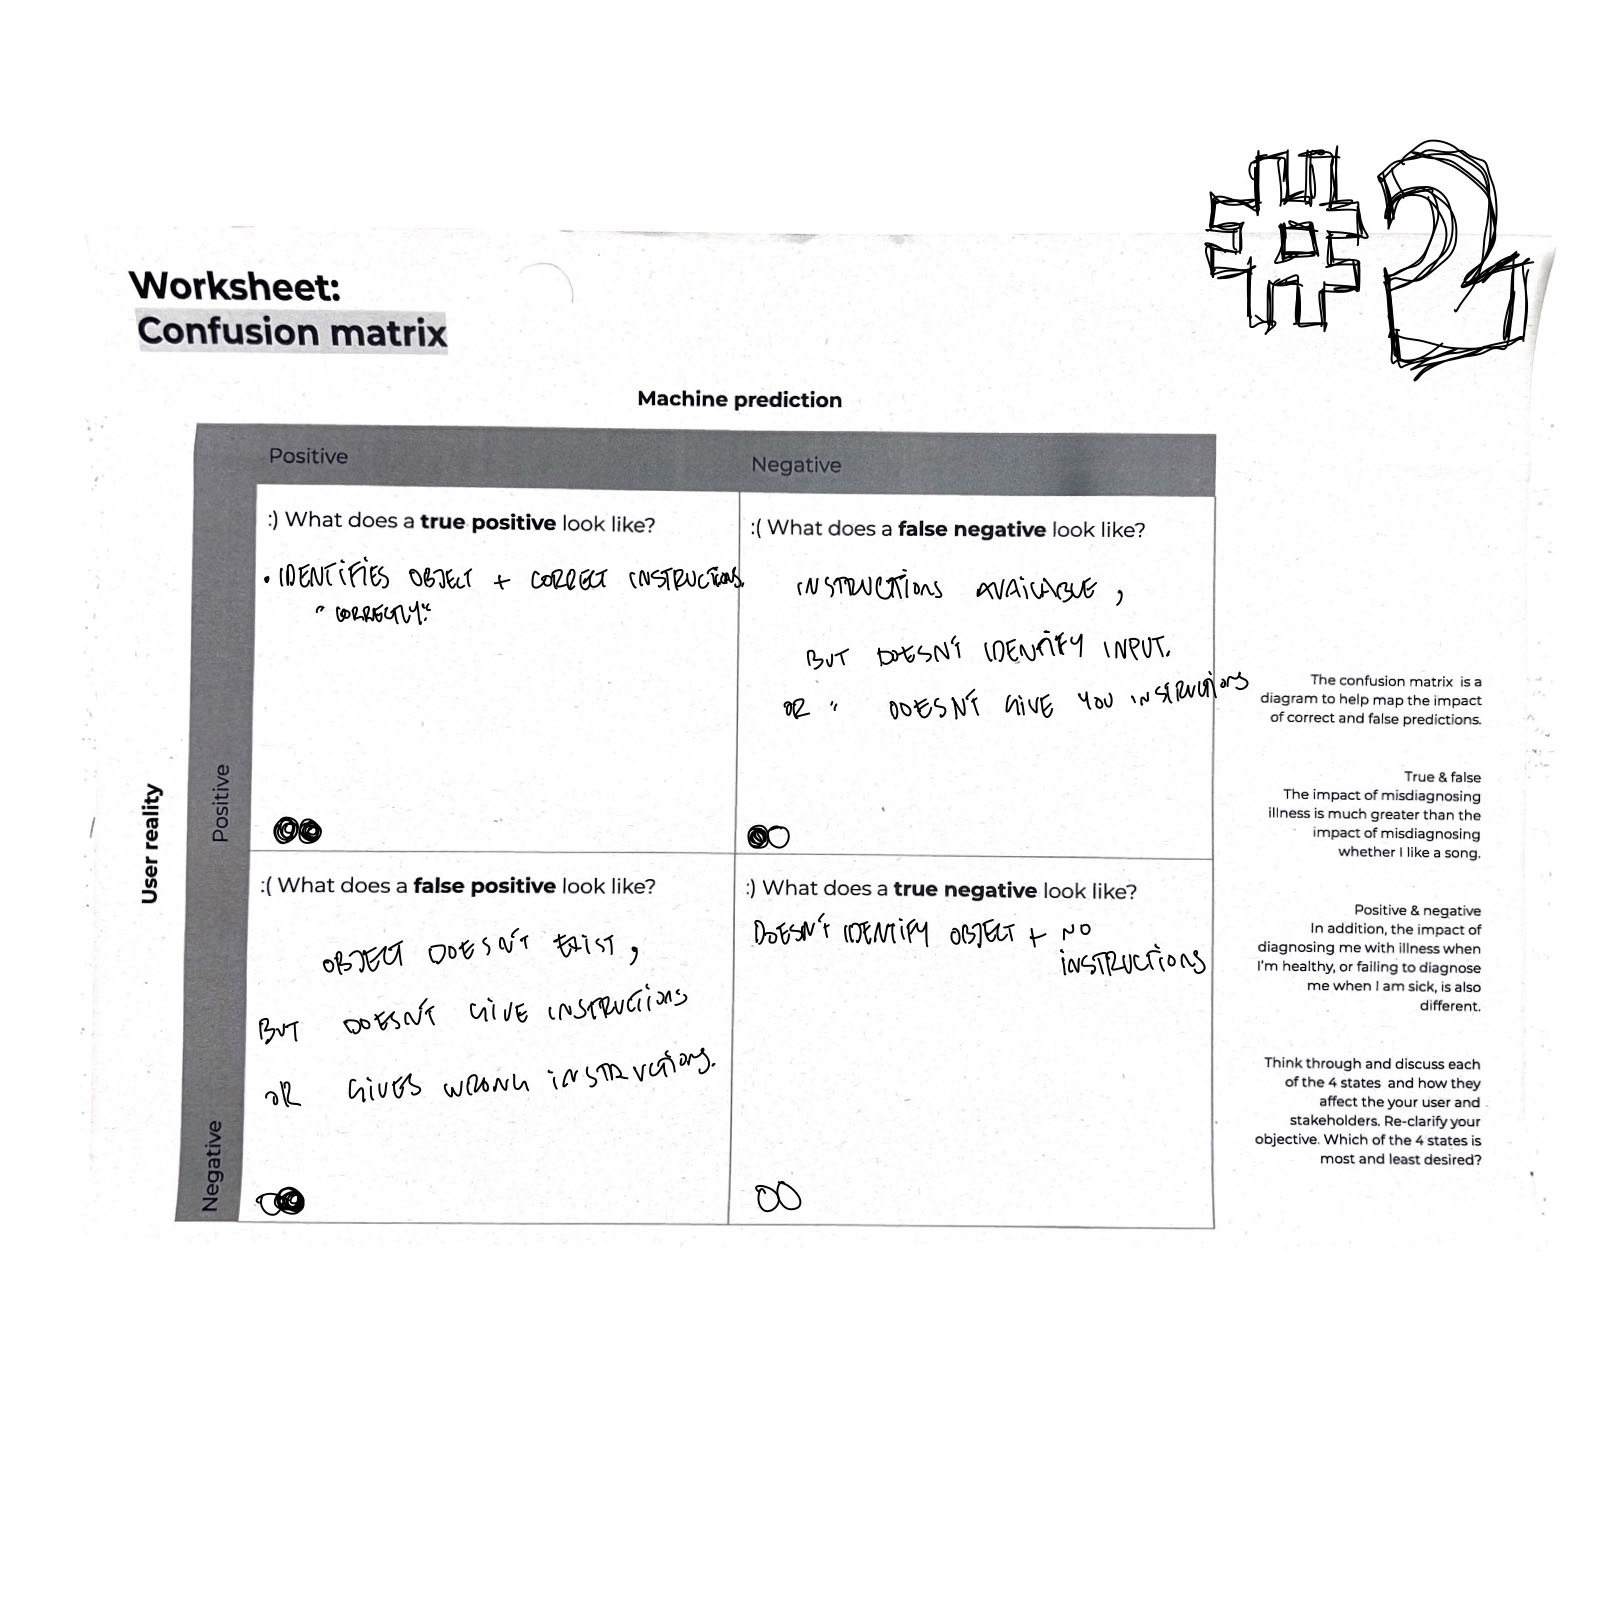 #2
Worksheet:
Confusion matrix
Machine prediction
Positive
Negative
User reality
Positive
:) What does a true positive look like?
• IDENTIFIES OBJECT + CORRECT INSTRUCTIONS.
" CORRECTLY."
:( What does a false negative look like?
INSTRUCTIONS AVAILABLE,
BUT DOESN'T IDENTIFY INPUT.
OR " DOESN'T GIVE YOU INSTRUCTIONS
Negative
:( What does a false positive look like?
OBJECT DOESN'T EXIST,
BUT DOESN'T GIVE INSTRUCTIONS
OR GIVES WRONG INSTRUCTIONS.
:) What does a true negative look like?
DOESN'T IDENTIFY OBJECT + NO
INSTRUCTIONS
The confusion matrix is a
diagram to help map the impact
of correct and false predictions.
True & false
The impact of misdiagnosing
illness is much greater than the
impact of misdiagnosing
whether I like a song.
Positive & negative
In addition, the impact of
diagnosing me with illness when
I'm healthy, or failing to diagnose
me when I am sick, is also
different.
Think through and discuss each
of the 4 states and how they
affect the your user and
stakeholders. Re-clarify your
objective. Which of the 4 states is
most and least desired?